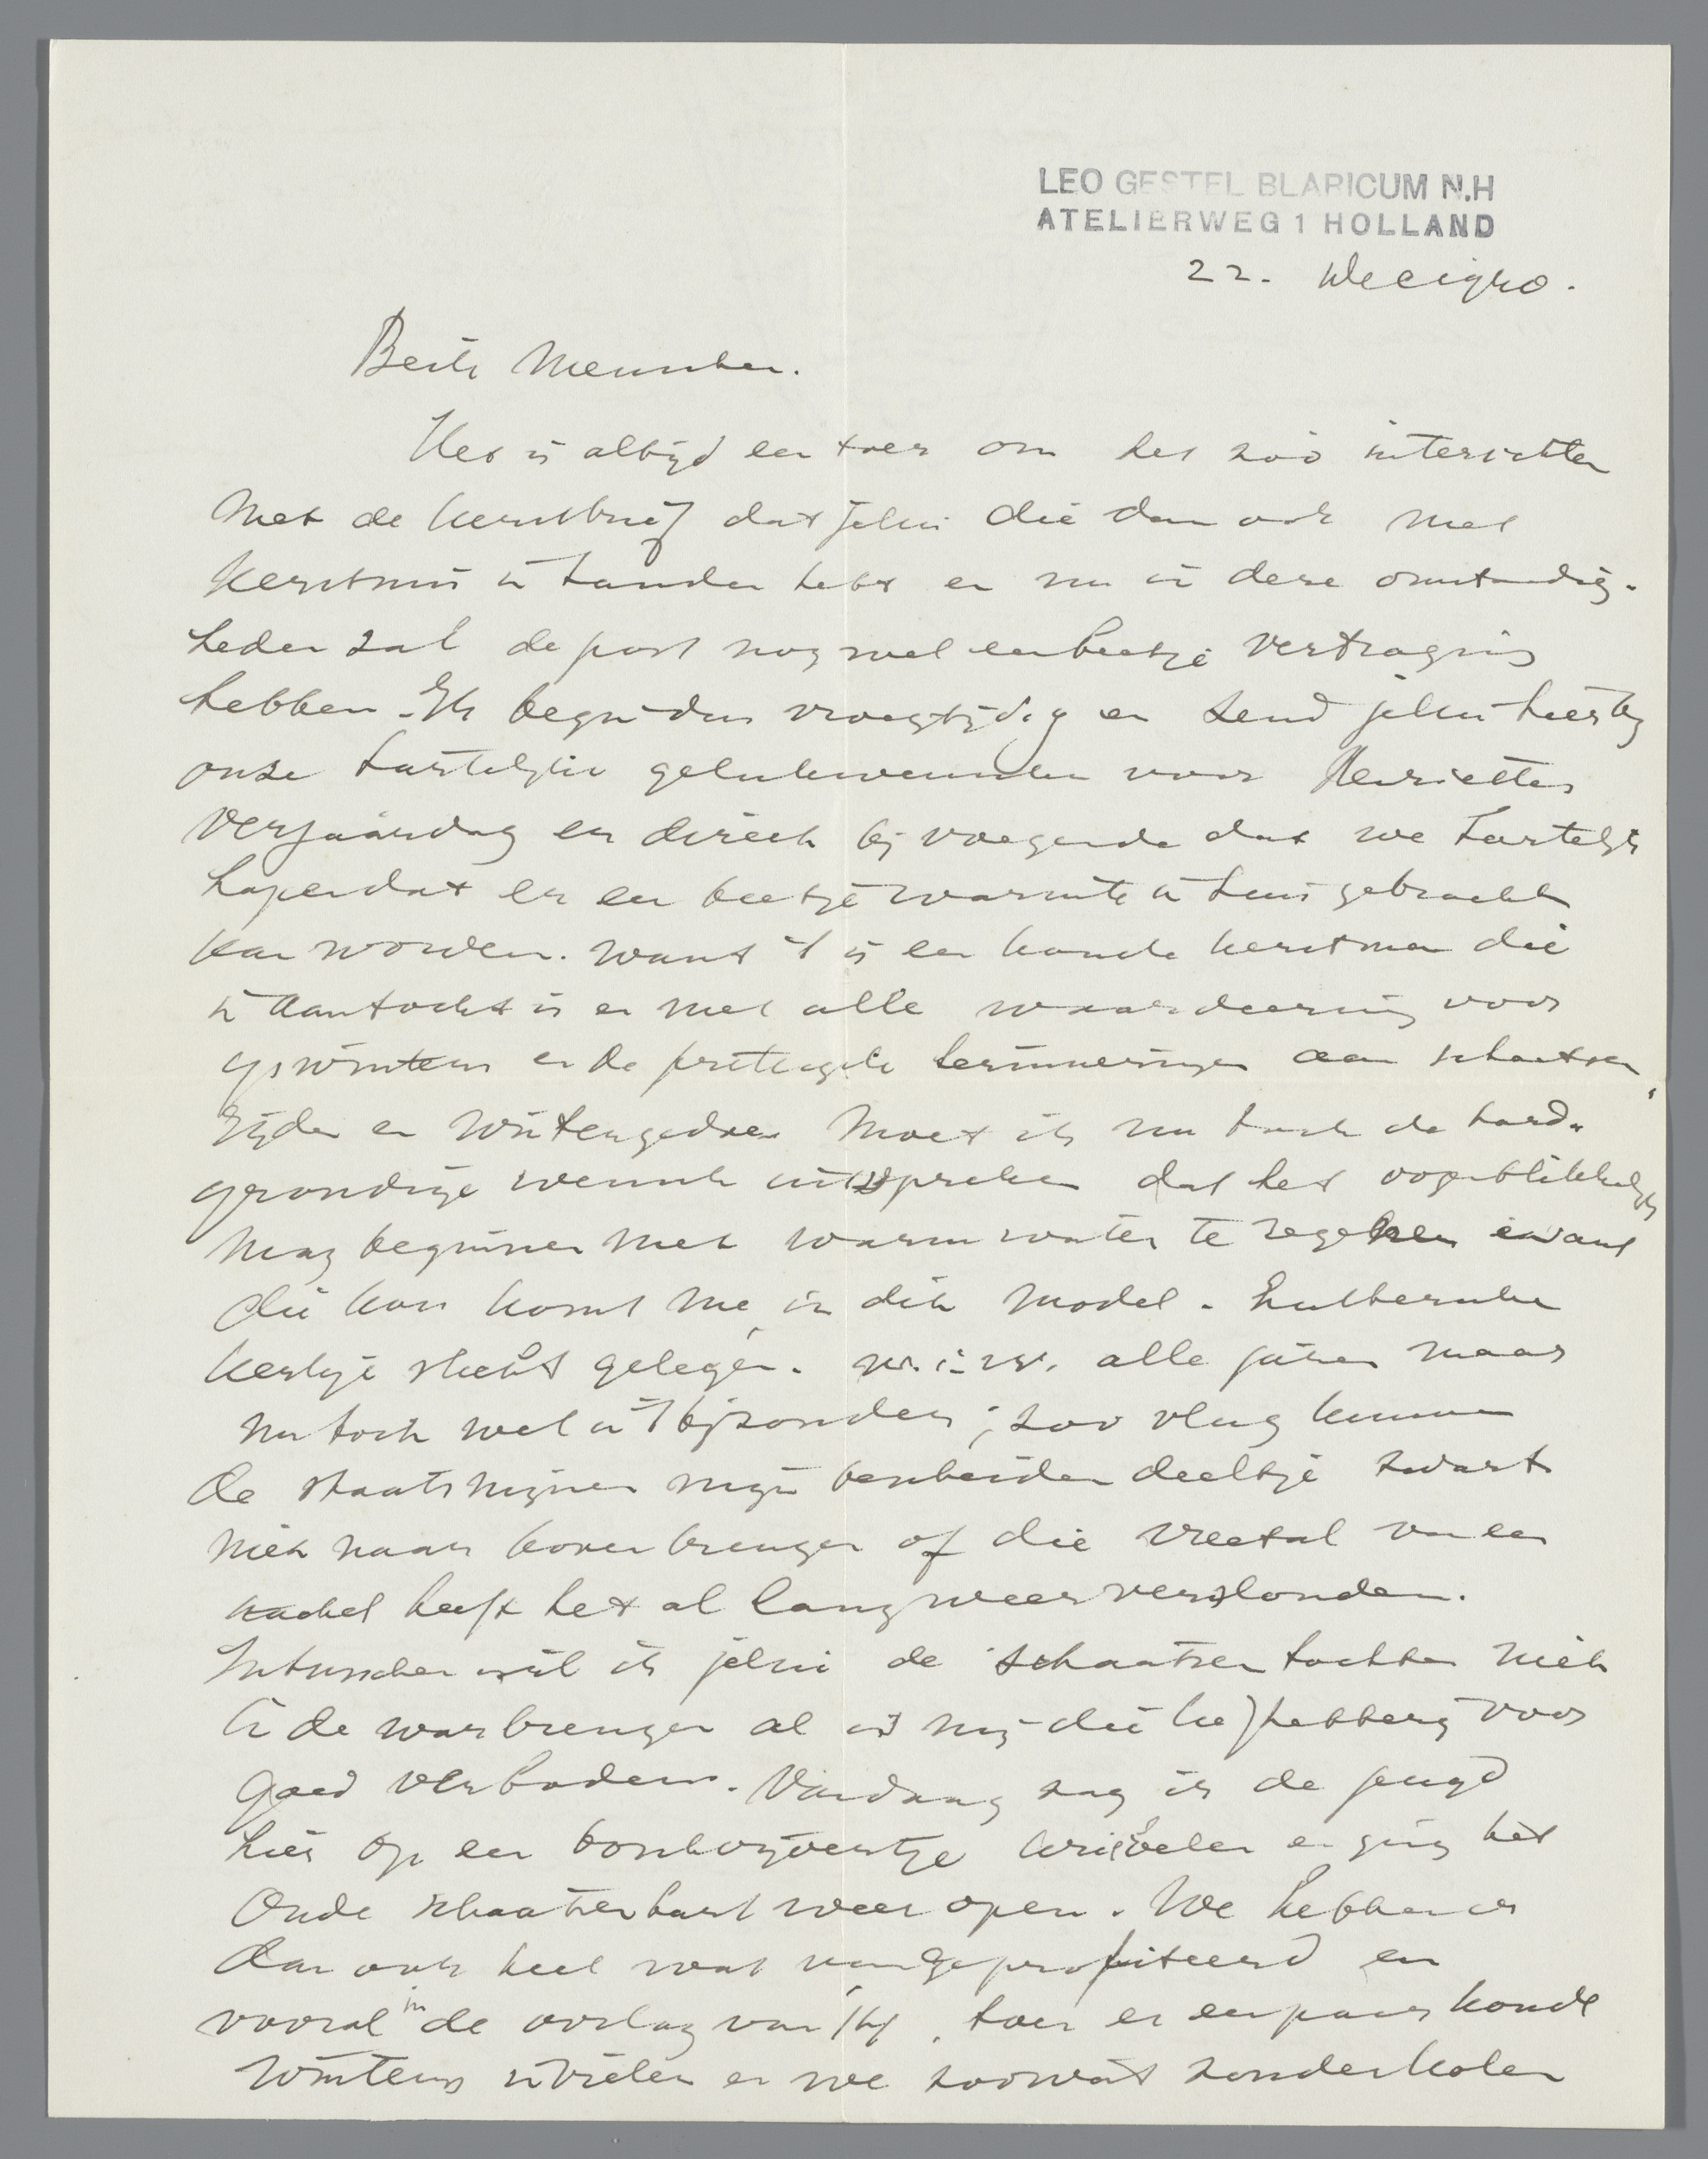 LEO GESTEL BLARICUM N.H
ATELIERWEG 1 HOLLAND
22. Dec 1940.
Beste Menschen.
Het is altijd een toer om het zóó in te richten
met de kerstbrief dat jelui die dan ook met
Kerstmis in handen hebt en nu in deze omstandig-
heden zal de post nog wel een beetje vertraging
hebben. Ik begin dus vroegtijdig en zend jelui hierbij
onze hartelijke gelukwenschen voor Henriettes
verjaardag en direct bij voegende dat we hartelijk
hopen dat er een beetje warmte in huis gebracht
kan worden. want 't is een koude kerstman die
in aantocht is en met alle waardeering voor
ijswinters en de prettige herinneringen aan schaatsen
rijden en wintergedoe moet ik nu toch de hard-
grondige wensch uitspreken dat het oogenblikkelijk
mag beginnen met warm water te regenen want
die kou komt me in dit model. Luthersche
kerkje slecht gelegen. w.i.w. alle jaren maar
nu toch wel in 't bijzonder; zoo vlug kunnen
de staatsmijnen mijn bescheiden deeltje zwart
niet naar boven brengen of die vreetal van een
kachel heeft het al lang weer verslonden.
Intusschen wil ik jelui de schaatsentochten niet
in de war brengen al is mij die liefhebberij voor
goed verboden. Vandaag zag ik de jeugd
hier op een boschvijvertje krioelen en ging het
oude schaatsenhart weer open. We hebben er
dan ook heel wat van geprofiteerd en
vooral in de oorlog van 14, toen er een paar koude
winters in vielen en we zoowat zonder kolen